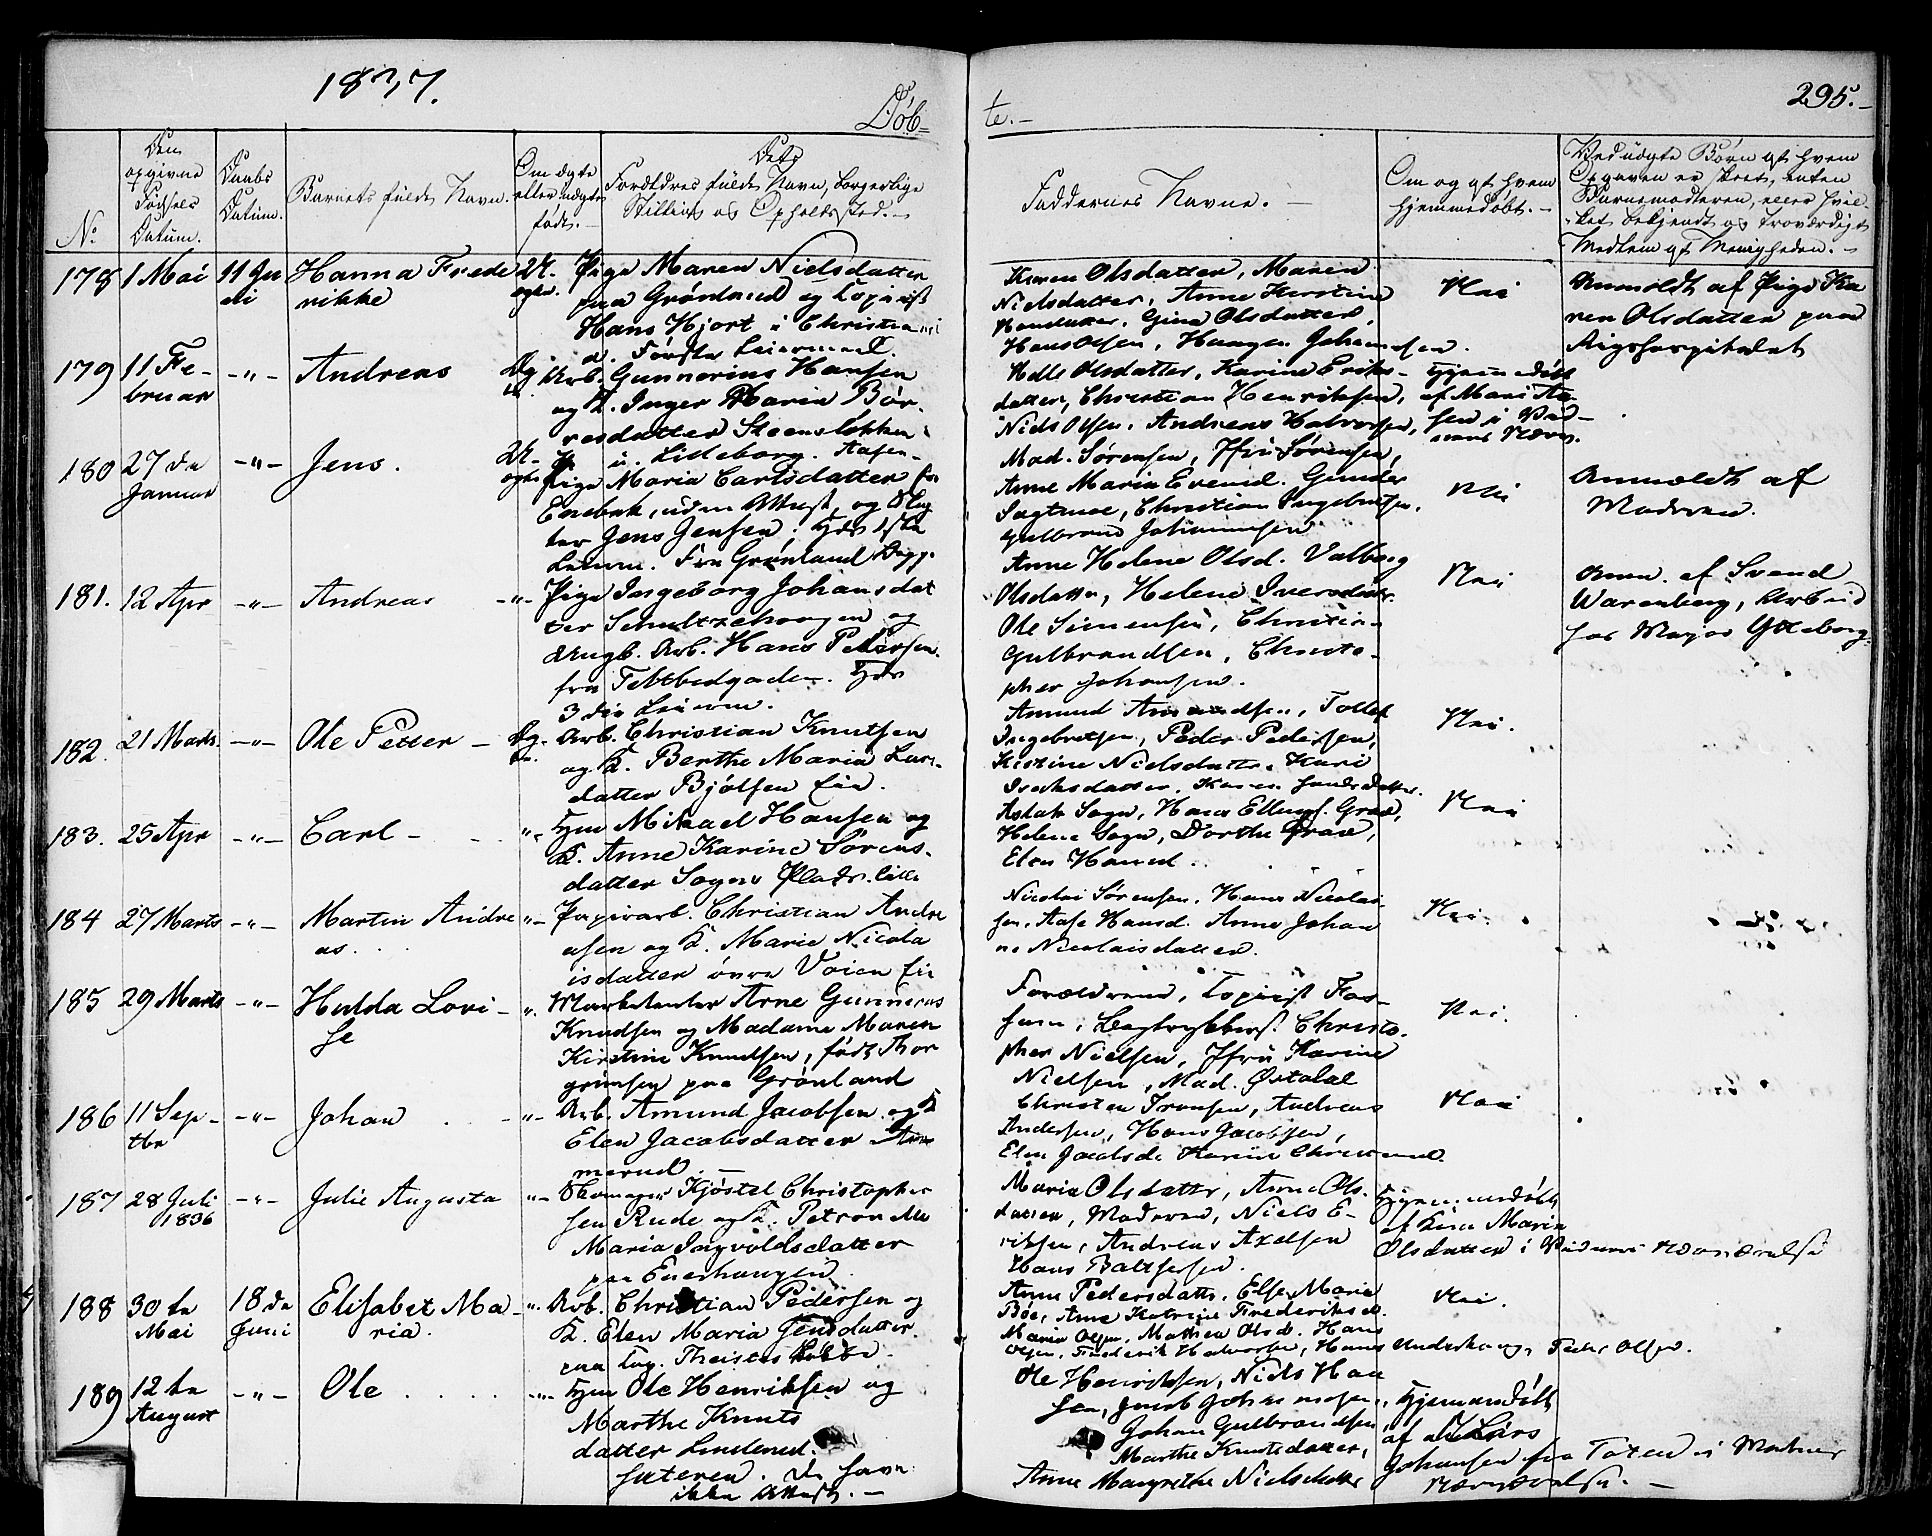 1837.
Döb=
te.-
295.-
No.
Den opgivne Fødsels Datum.
Daabs Datum.
Barnets fulde Navn.
Om ægte eller uægte født.-
Dets Forældres fulde Navn, borgerlige Stilling og Opholdssted.-
Faddernes Navne.-
Om og af hvem hjemmedøbt.-
Ved uægte Børn af hvem Opgaven er skeet, enten Barnemoderen, eller hvilket bekjendt og troværdigt Medlem af Menigheden.-
178 1 Mai 11 Juni Hanna Frede
rikke
Pige Maren Nielsdatter
paa Grønland og Copiist
Hans Hjort i Christiani
a. Første Leiermaal.
Karen Olsdatter, Maren
Nielsdatter, Anne Kerstine
Hansdatter, Gina Olsdatter,
Hans Olsen, Haagen Johannesen.
Nei
Anmeldt af Pige Ka
ren Olsdatter paa
Rigshospitalet
179 11 Fe-
bruar -"- Andreas
Arb. Gunnerius Hansen
og K. Inger Maria Bør-
resdatter Steensløkken
Helle Olsdatter, Karine Eriks-
datter, Christian Henriksen,
Niels Olsen, Andreas Halvorsen,
180 27 de
Januar -"- Jens.
Pige Maria Carlsdatter fra
Enebak, uden Attest, og Slag
ter Jens Jensen, Hds 1ste
Leierm. Fra Grønland
Mad. Sørensen, Jfr Sørensen,
Anne Maria Evend. Gunder
Sagmoe, Christian Ingebretsen,
Gulbrand Johannesen
Nei
Anmeldt af
Moderen.
181. 12 Apr -"- Andreas -"-
Pige Ingeborg Johansdat
ter Schultzehougen og
Ungk. Arb. Hans Petersen
fra Feltbedgaden. Hds
3die Leierm.
Anne Helene Olsd. Valborg
Olsdatter, Helene Iversdatter
Ole Simensen, Christian
Gulbrandsen, Christo-
pher Johansen.
Nei
Anm. af Svend
Warenberg, Arbeid
hos Major Gtteborg
182. 21 Marts. -"- Ole Petter -
Arb. Christian Knutsen
og K. Berthe Maria Lars-
datter Bjølsen Eie.
Amund Amundsen, Tollef
Ingebretsen, Peder Pedersen,
Kistine Nielsdatter, Kari
Nei.
183. 25 Apr -"- Carl -
Hjm Mikael Hansen og
K. Anne Karine Sørens-
datter Sogns Plads. Lille
Aslak Sogn, Hans Ellingsen Graae,
Helene Sogn, Dorthe Graae,
Elen Hansd.
Nei
184 27 Marts -"- Martin Andre
as.
Papirarb. Christian Andre
asen og K. Marie Nicola
isdatter övre Voien Eie
Nicolai Sørensen, Hans Nicolai-
sen, Aase Hansd. Anne Johan
ne Nicolaisdatter.
Nei.
185 29 Marts -"- Hulda Lovi-
se
Marketenter Arne Gunnerus
Knudsen og Madame Maren
Kirstine Knudsen, født Thor
grimsen paa Grønland
Forældrene, Copiist Fos-
sum, Bogtrykkers. Christo-
pher Nielsen, Jfru Karine
Nielsen, Mad. Østdal
Nei.
186 11 Sep-
tbr -"- Johan -"-
Arb. Amund Jacobsen og K
Elen Jacobsdatter Am
merud.
Christen Tronsen, Andreas
Andersen, Hans Jacobsen,
Elen Jacobsd. Karine
Nei
187 28 Juli
1836 -"- Julie Augusta -"-
Skomager Kjöstel Christopher
sen Rude og K. Petronelle
Maria Ingvoldsdatter
paa Enerhaugen.
Maria Olsdatter, Anne Ols-
datter, Moderen, Niels E-
riksen, Andreas Axelsen
Hans Baltsersen.
Hjemmedøbt
af Maria
Olsdatter i Vidners Nærværelse
188 30 te
Mai 18 de
Juni Elisabet Ma-
ria.
Arb. Christian Pedersen og
K. Elen Maria Jensdatter
paa Cap. Theistes Løkke.
Anne Pedersdatter, Else Marie
Böe, Anne Katrine Frederiksd.
Maria Olsen, Mathea Olsd. Hans
Olsen, Frederik Halvorsen, Hans Underhaug, Peder Olsen.
Nei.
189 12 te
August -"- Ole
Hjm Ole Henriksen og
Marthe Knuts
datter Linderud.
sæteren. De have
ikke Attest.-
Ole Henriksen, Niels Han
sen, Jacob Johannesen,
Johan Gulbrandsen
Marthe Knutsdatter,
Anne Margrethe Nielsdatter
Hjemmedøbt
af Lars
Johansen fra Toten i Modrens
Nærværelse.-